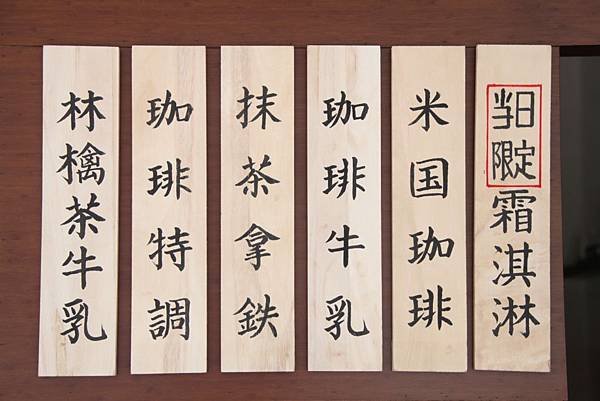 当日限定霜淇淋
米国珈琲
珈琲牛乳
抹茶拿鉄
珈琲特調
林檎茶牛乳